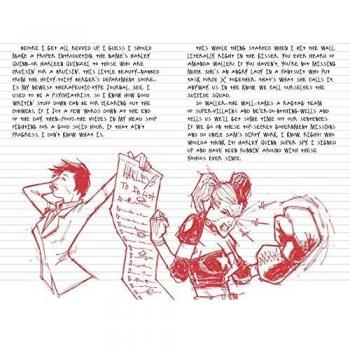 BEFORE I GET ALL REVVED UP I GUESS I SHOULD
MAKE A PROPER INTRODUCTION. THE NAME'S HARLEY
QUINN—OR HARLEEN QUINZEL TO THOSE WHO ARE
CRUISIN' FOR A BRUISIN'. THIS LITTLE BEAUTY—NABBED
FROM THE HOITY-TOITY BERGER'S DEPARTMENT STORE—
IS MY NEWEST THERAPEUTIC-TYPE JOURNAL. SEE, I
USED TO BE A PSYCHIATRIST, SO I KNOW HOW GOOD
WRITIN' STUFF DOWN CAN BE FOR CLEARING OUT THE
DEMONS. IF I JOT A FEW WORDS DOWN AT THE END
OF THE DAY, THEN—POOF!—THE VOICES IN MY HEAD STOP
FIGHTING FOR A GOOD SOLID HOUR. IF THAT AIN'T
PROGRESS, I DON'T KNOW WHAT IS.
THIS WHOLE THING STARTED WHEN I HIT THE WALL.
LITERALLY. RIGHT IN THE KISSER. YOU EVER HEARD OF
AMANDA WALLER? IF YOU HAVEN'T, YOU'RE NOT MISSING
MUCH. SHE'S AN ANGRY LADY IN A PANTSUIT WHO PUT
TASK FORCE X TOGETHER. THAT'S WHAT SHE CALLS IT.
ANYWAY, US IN THE KNOW, WE CALL OURSELVES THE
SUICIDE SQUAD.
SO WALLER—THE WALL—TAKES A RAGTAG TEAM
OF SUPER-VILLAINS AND NE'ER-DO-WELLS AND
TELLS US WE'LL GET SOME TIME OFF OUR SENTENCES
IF WE GO ON THESE TOP-SECRET GOVERNMENT MISSIONS
AND DO UNCLE SAM'S DIRTY WORK. I KNOW, RIGHT? WHO
WOULDA THINK IT? HARLEY QUINN: SUPER SPY. I SIGNED
UP AND HAVE BEEN RUNNIN' AROUND WITH THESE
YAHOOS EVER SINCE.
HARLEY'S
TO DO LIST